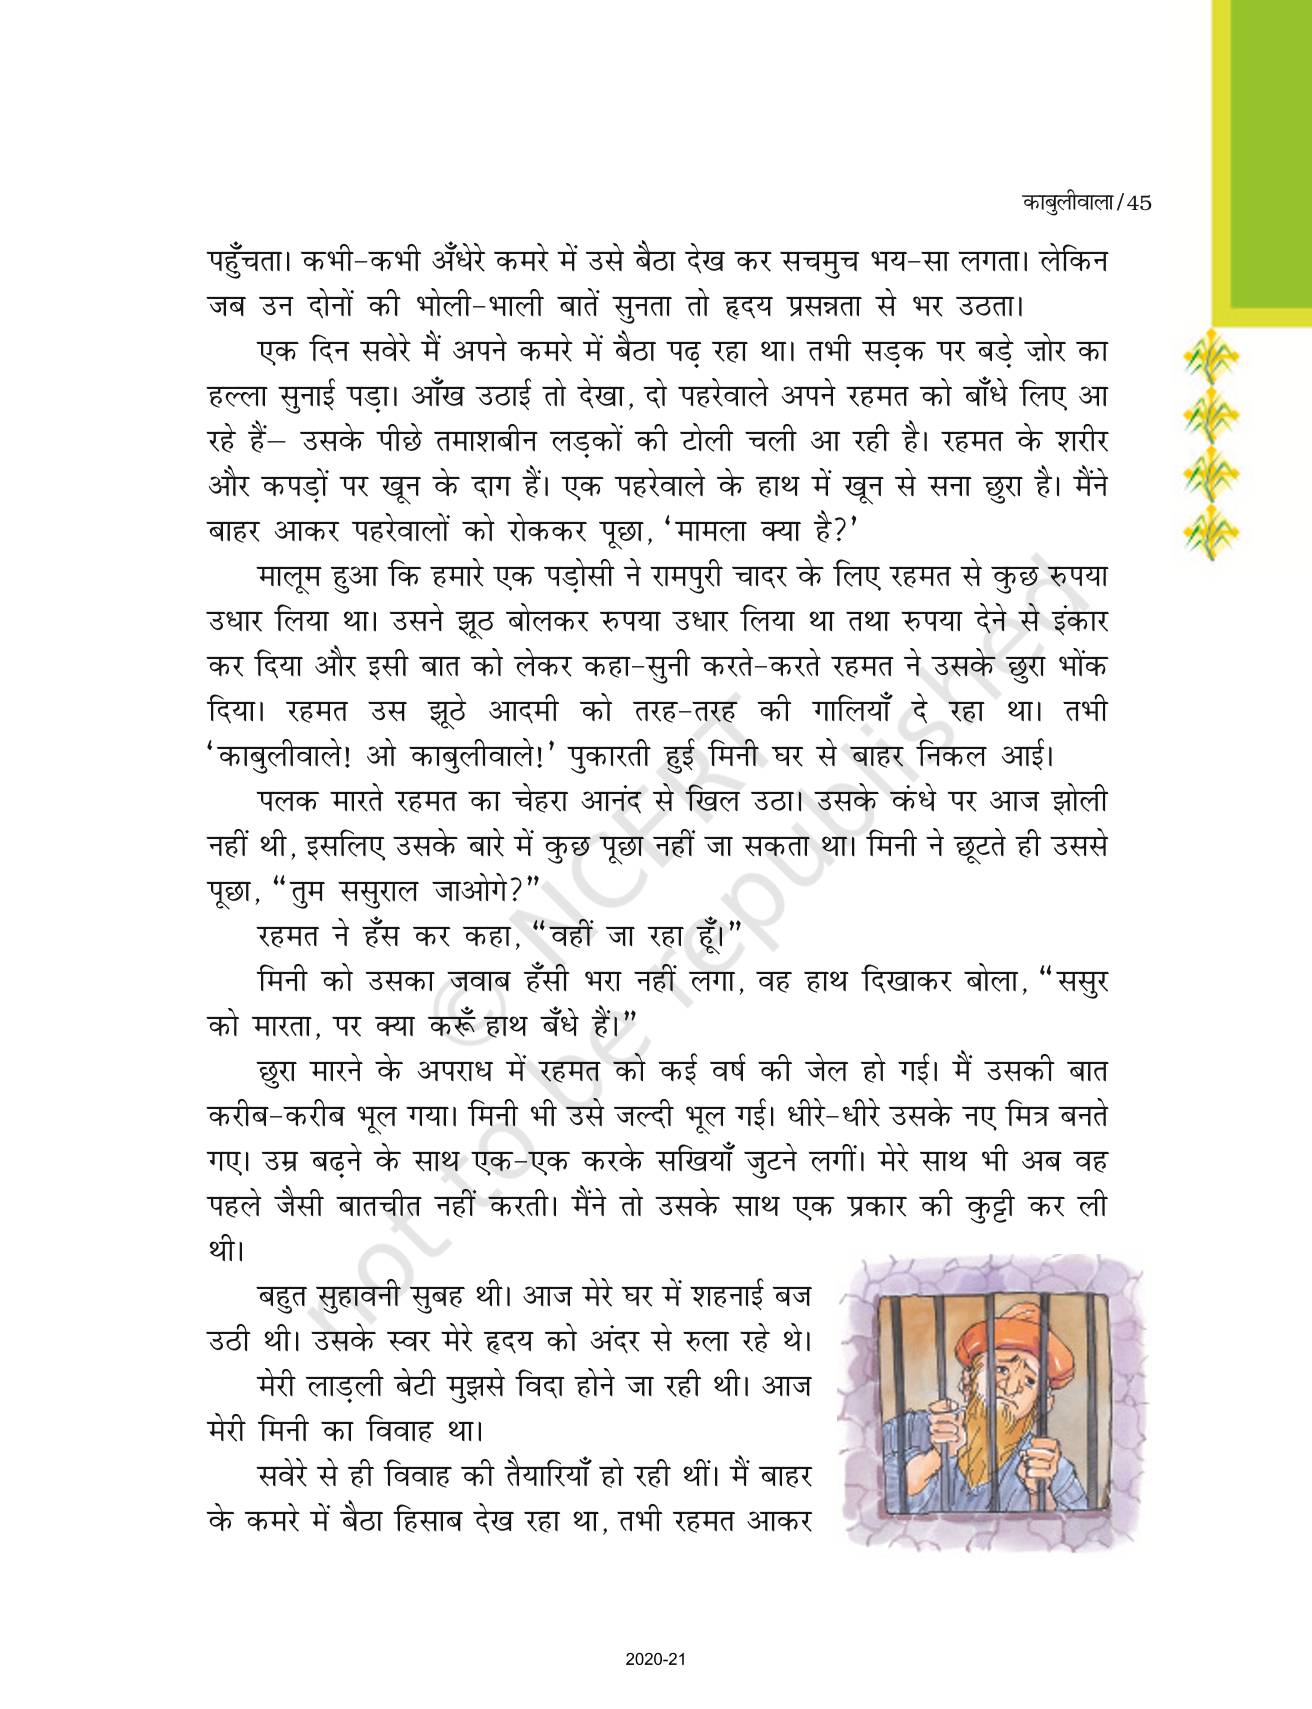 काबुलीवाला/45
पहुँचता। कभी-कभी अँधेरे कमरे में उसे बैठा देख कर सचमुच भय-सा लगता। लेकिन
जब उन दोनों की भोली-भाली बातें सुनता तो हृदय प्रसन्नता से भर उठता।
एक दिन सवेरे मैं अपने कमरे में बैठा पढ़ रहा था। तभी सड़क पर बड़े ज़ोर का
हल्ला सुनाई पड़ा। आँख उठाई तो देखा, दो पहरेवाले अपने रहमत को बाँधे लिए आ
रहे हैं– उसके पीछे तमाशबीन लड़कों की टोली चली आ रही है। रहमत के शरीर
और कपड़ों पर खून के दाग हैं। एक पहरेवाले के हाथ में खून से सना छुरा है। मैंने
बाहर आकर पहरेवालों को रोककर पूछा, ‘मामला क्या है?’
मालूम हुआ कि हमारे एक पड़ोसी ने रामपुरी चादर के लिए रहमत से कुछ रुपया
उधार लिया था। उसने झूठ बोलकर रुपया उधार लिया था तथा रुपया देने से इंकार
कर दिया और इसी बात को लेकर कहा-सुनी करते-करते रहमत ने उसके छुरा भोंक
दिया। रहमत उस झूठे आदमी को तरह-तरह की गालियाँ दे रहा था। तभी
‘काबुलीवाले! ओ काबुलीवाले!’ पुकारती हुई मिनी घर से बाहर निकल आई।
पलक मारते रहमत का चेहरा आनंद से खिल उठा। उसके कंधे पर आज झोली
नहीं थी, इसलिए उसके बारे में कुछ पूछा नहीं जा सकता था। मिनी ने छूटते ही उससे
पूछा, “तुम ससुराल जाओगे?”
रहमत ने हँस कर कहा, “वहीं जा रहा हूँ।”
मिनी को उसका जवाब हँसी भरा नहीं लगा, वह हाथ दिखाकर बोला, “ससुर
को मारता, पर क्या करूँ हाथ बँधे हैं।”
छुरा मारने के अपराध में रहमत को कई वर्ष की जेल हो गई। मैं उसकी बात
करीब-करीब भूल गया। मिनी भी उसे जल्दी भूल गई। धीरे-धीरे उसके नए मित्र बनते
गए। उम्र बढ़ने के साथ एक-एक करके सखियाँ जुटने लगीं। मेरे साथ भी अब वह
पहले जैसी बातचीत नहीं करती। मैंने तो उसके साथ एक प्रकार की कुट्टी कर ली
थी।
बहुत सुहावनी सुबह थी। आज मेरे घर में शहनाई बज
उठी थी। उसके स्वर मेरे हृदय को अंदर से रुला रहे थे।
मेरी लाड़ली बेटी मुझसे विदा होने जा रही थी। आज
मेरी मिनी का विवाह था।
सवेरे से ही विवाह की तैयारियाँ हो रही थीं। मैं बाहर
के कमरे में बैठा हिसाब देख रहा था, तभी रहमत आकर
© NCERT
not to be republished
2020-21